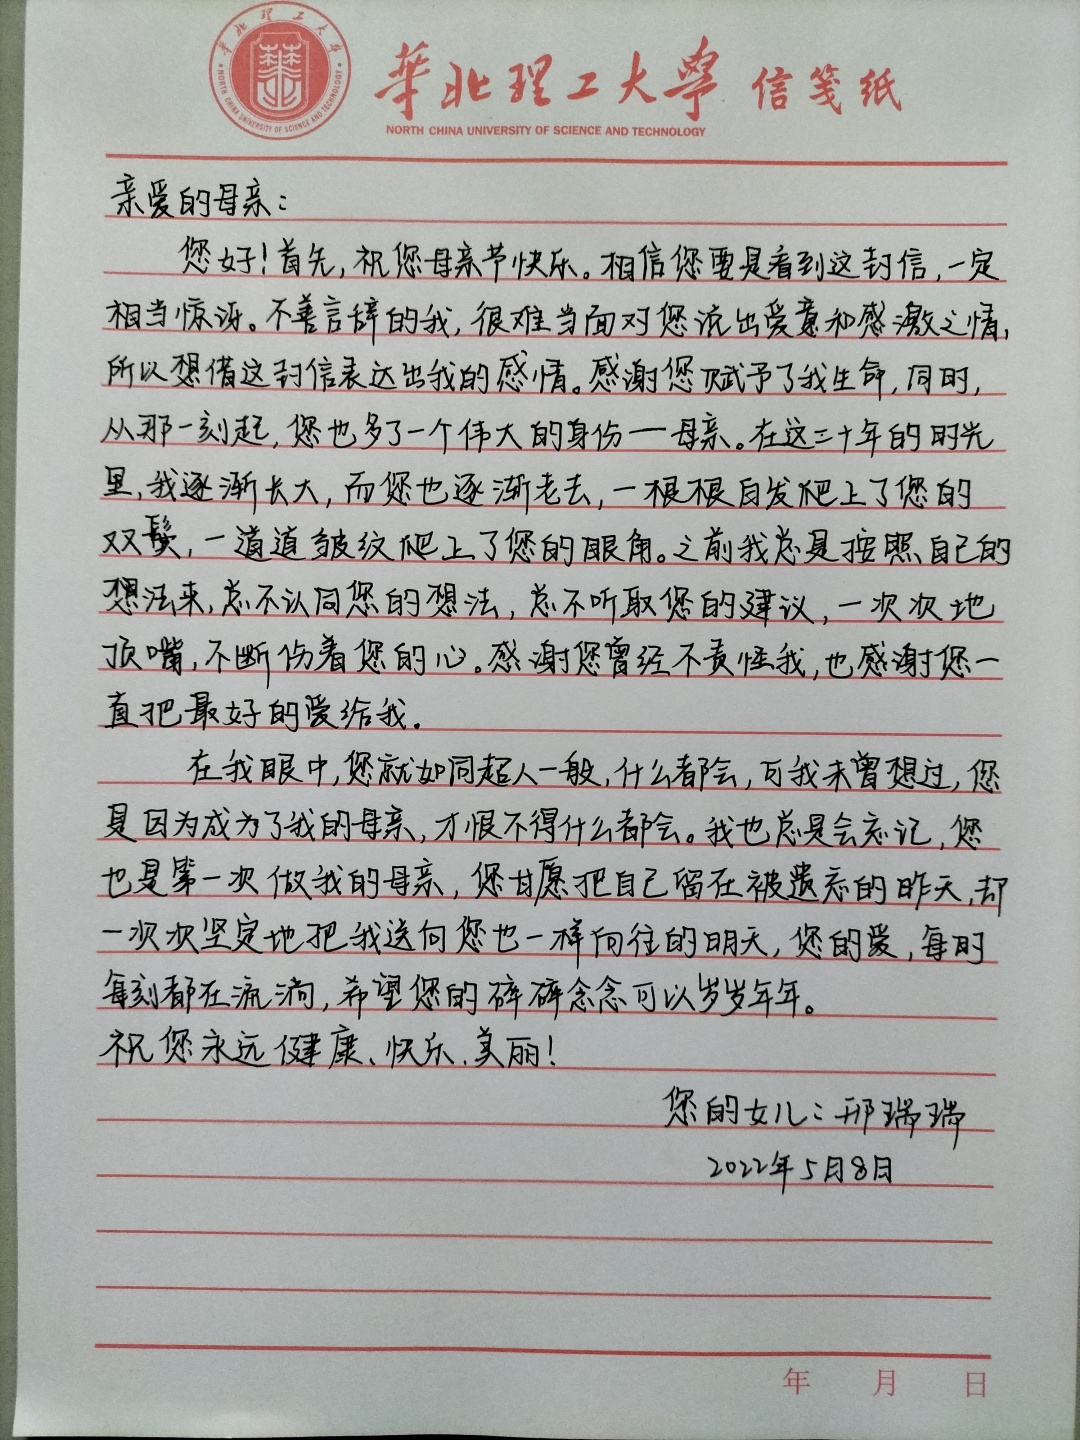 華北理工大學
NORTH CHINA UNIVERSITY OF SCIENCE AND TECHNOLOGY
華北理工大學 信箋紙
NORTH CHINA UNIVERSITY OF SCIENCE AND TECHNOLOGY
亲爱的母亲：
您好！首先，祝您母亲节快乐。相信您要是看到这封信，一定
相当惊讶。不善言辞的我，很难当面对您流出爱意和感激之情，
所以想借这封信表达出我的感情。感谢您赋予了我生命，同时，
从那一刻起，您也多了一个伟大的身份一母亲。在这二十年的时光
里，我逐渐长大，而您也逐渐老去，一根根白发爬上了您的
双鬓，一道道皱纹爬上了您的眼角。之前我总是按照自己的
想法来，总不认同您的想法，总不听取您的建议，一次次地
顶嘴，不断伤着您的心。感谢您曾经不责怪我，也感谢您一
直把最好的爱给我。
在我眼中，您就如同超人一般，什么都会，可我未曾想过，您
是因为成为了我的母亲，才恨不得什么都会。我也总是会忘记，您
也是第一次做我的母亲，您甘愿把自己留在被遗忘的昨天，却
一次次坚定地把我送向您也一样向往的明天，您的爱，每时
每刻都在流淌，希望您的碎碎念念可以岁岁年年。
祝您永远健康、快乐、美丽！
您的女儿：邢瑞瑞
2022年5月8日
年 月 日